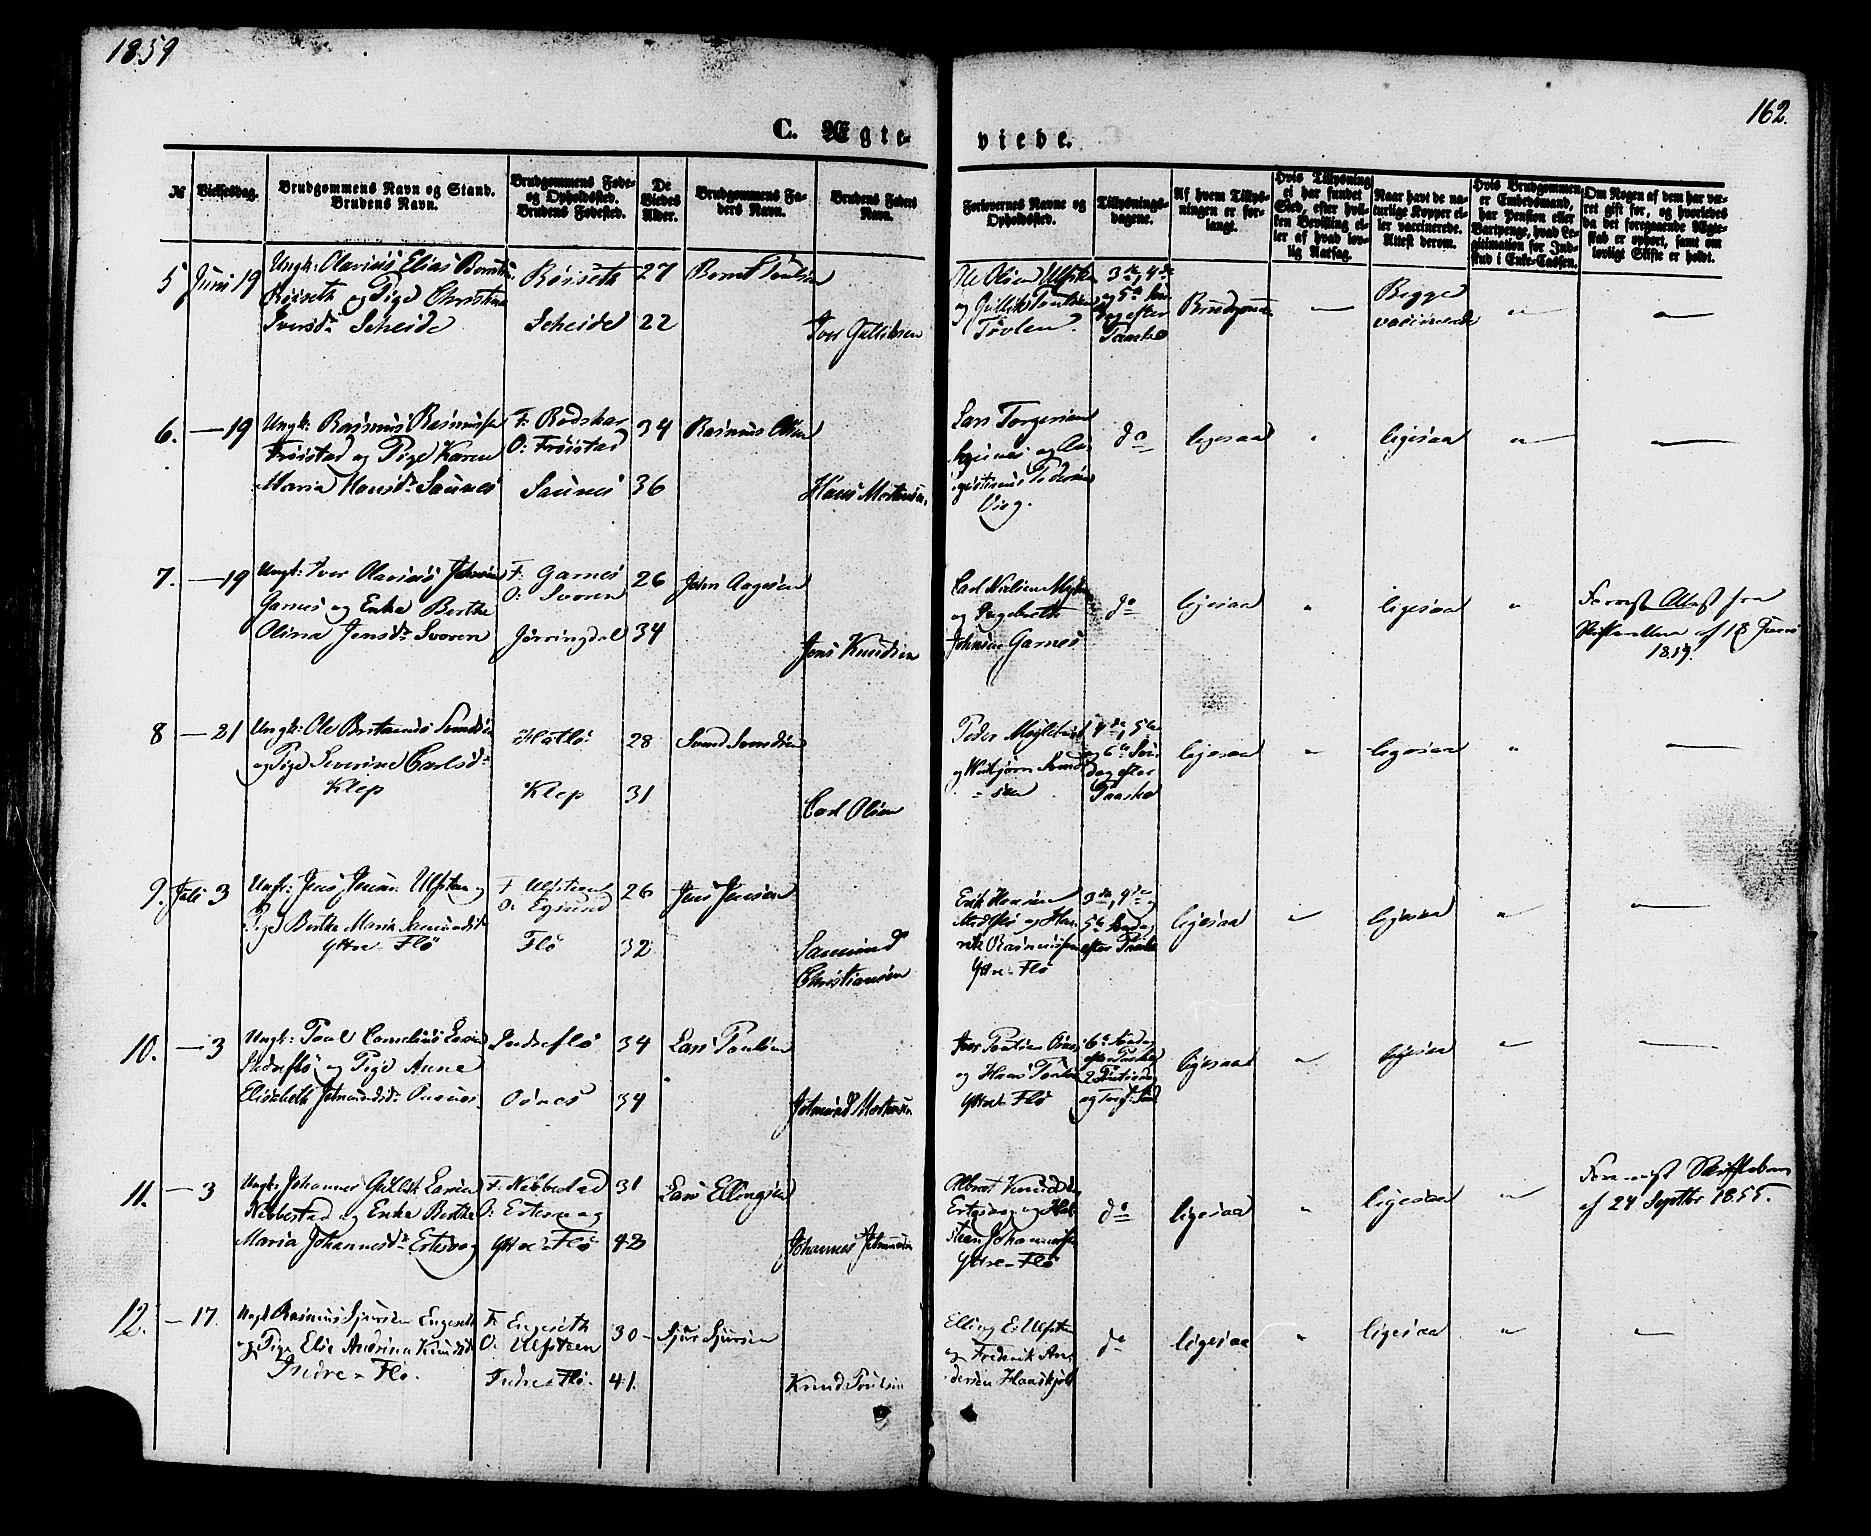 1859
162.
C. Ægte-
viede.
№
Vielsesdag.
Brudgommens Navn og Stand.
Brudens Navn.
Brudgommens Føde-
og Opholdssted.
Brudens Fødested.
De
Viedes
Alder.
Brudgommens Fa-
ders Navn.
Brudens Faders
Navn.
Forlovernes Navne og
Opholdssted.
Tillysnings-
dagene.
Af hvem Tillys-
ningen er for-
langt.
Hvis Tillysning
ei har fundet
Sted, efter hvil-
ken Bevilling el-
ler af hvad lov-
lig Aarsag.
Naar havt de na-
turlige Kopper el-
ler vaccinerede.
Attest derom.
Hvis Brudgommen
er Embedsmand,
har Pension eller
Vartpenge, hvad Le-
gitimation for Ind-
skud i Enke-Cassen.
Om Nogen af dem har væ-
ret gift før, og hvorledes
da det foregaaende Ægte-
skab er ophørt, samt om
lovligt Skifte er holdt.
5 Juni 19
Ungk: Olavius Elias Bernts:
Røiseth og Pige Christine
Iversd: Scheide
Røiseth
Scheide
27
22
Bernt Poulsen
Iver Gulliksen
Ole Olsen Ulfsten
og Gullik Poulsen
3de, 4de
og 5te Søn
dag efter
Paaske
Brudgom
—
Begge
vaccinerede
"
—
6. — 19
Ungk: Rasmus Rasmussen
Frøistad og Pige Karen
Maria Hansd: Saunes
F: Rødskar
O: Frøistad
Saunes
34
36
Rasmus Olsen
Hans Mortensen
Lars Torgersen
do
ligesaa
"
ligesaa
"
—
7. — 19
Ungk: Iver Olavius Johnsen
Garnes og Enke Berthe
Olina Jensd: Svoren
F: Garnes
O: Svoren
Jørringdal
26
34
John Aagesen
Jens Knudsen
Carl Nielsen Myklb
og Ingebreth
Johnsen Garnes
do
ligesaa
"
ligesaa
"
Forevist Attest fra
Skifteretten af 18 Juni
1859.
8 — 21
Ungk: Ole Bertinus Svendsen
og Pige Severine Carlsd:
Klep
Hatlø
Klep
28
31
Svend Svendsen
Carl Olsen
Peder
4de, 5te
og 6te Søn
dag efter
Paaske
ligesaa
"
ligesaa
"
—
9. Juli 3
Ungk: Jens Jensen Ulfsten og
Pige Berthe Maria Samundsd:
Ytre-Flø
F: Ulfsten
O: Egsund
Flø
26
32
Jens Jensen
Samund
Christiansen
Erik Hansen
Medflø og Hen
rik Rasmussen
Ytre-Flø
3de, 4de og
5te Søndag
efter Paaske
ligesaa
"
ligesaa
"
—
10. — 3
Ungk: Poul Cornelius Larsen
Indreflø og Pige Anne
Elisabeth Jetmundsd: Osnes.
Indreflø
Osnes
34
34
Lars Poulsen
Jetmund Mortensen
Iver Poulsen Osnes
og Hans Poulsen
Ytre-Flø
6te Søndag
efter Paaske
ligesaa
"
ligesaa
"
—
11. — 3
Ungk: Johannes Gullik Larsen
Nebbestad og Enke Berthe
Maria Johannesd: Ertesvag
F: Nebbestad
O: Ertesvag
Ytre-Flø
31
42
Lars Ellingsen
Johannes Jetmundsen
Albret Knudsen
Ertesvag og Hal
sten Johannessen
Ytre-Flø
do
ligesaa
"
ligesaa
"
Forevist Skiftebrev
af 24 Septbr 1855.
12. — 17.
Ungk Rasmus Sjursen Engeseth
og Pige Elie Andrina Knudsd:
Indre-Flø.
F: Engeseth
O: Ulfsteen
Indre-Flø.
30
41.
Sjur Sjursen
Knud Poulsen
Elling E: Ulfsten
og Frederik An
dersen Haaskjold
do
ligesaa
"
ligesaa
"
—